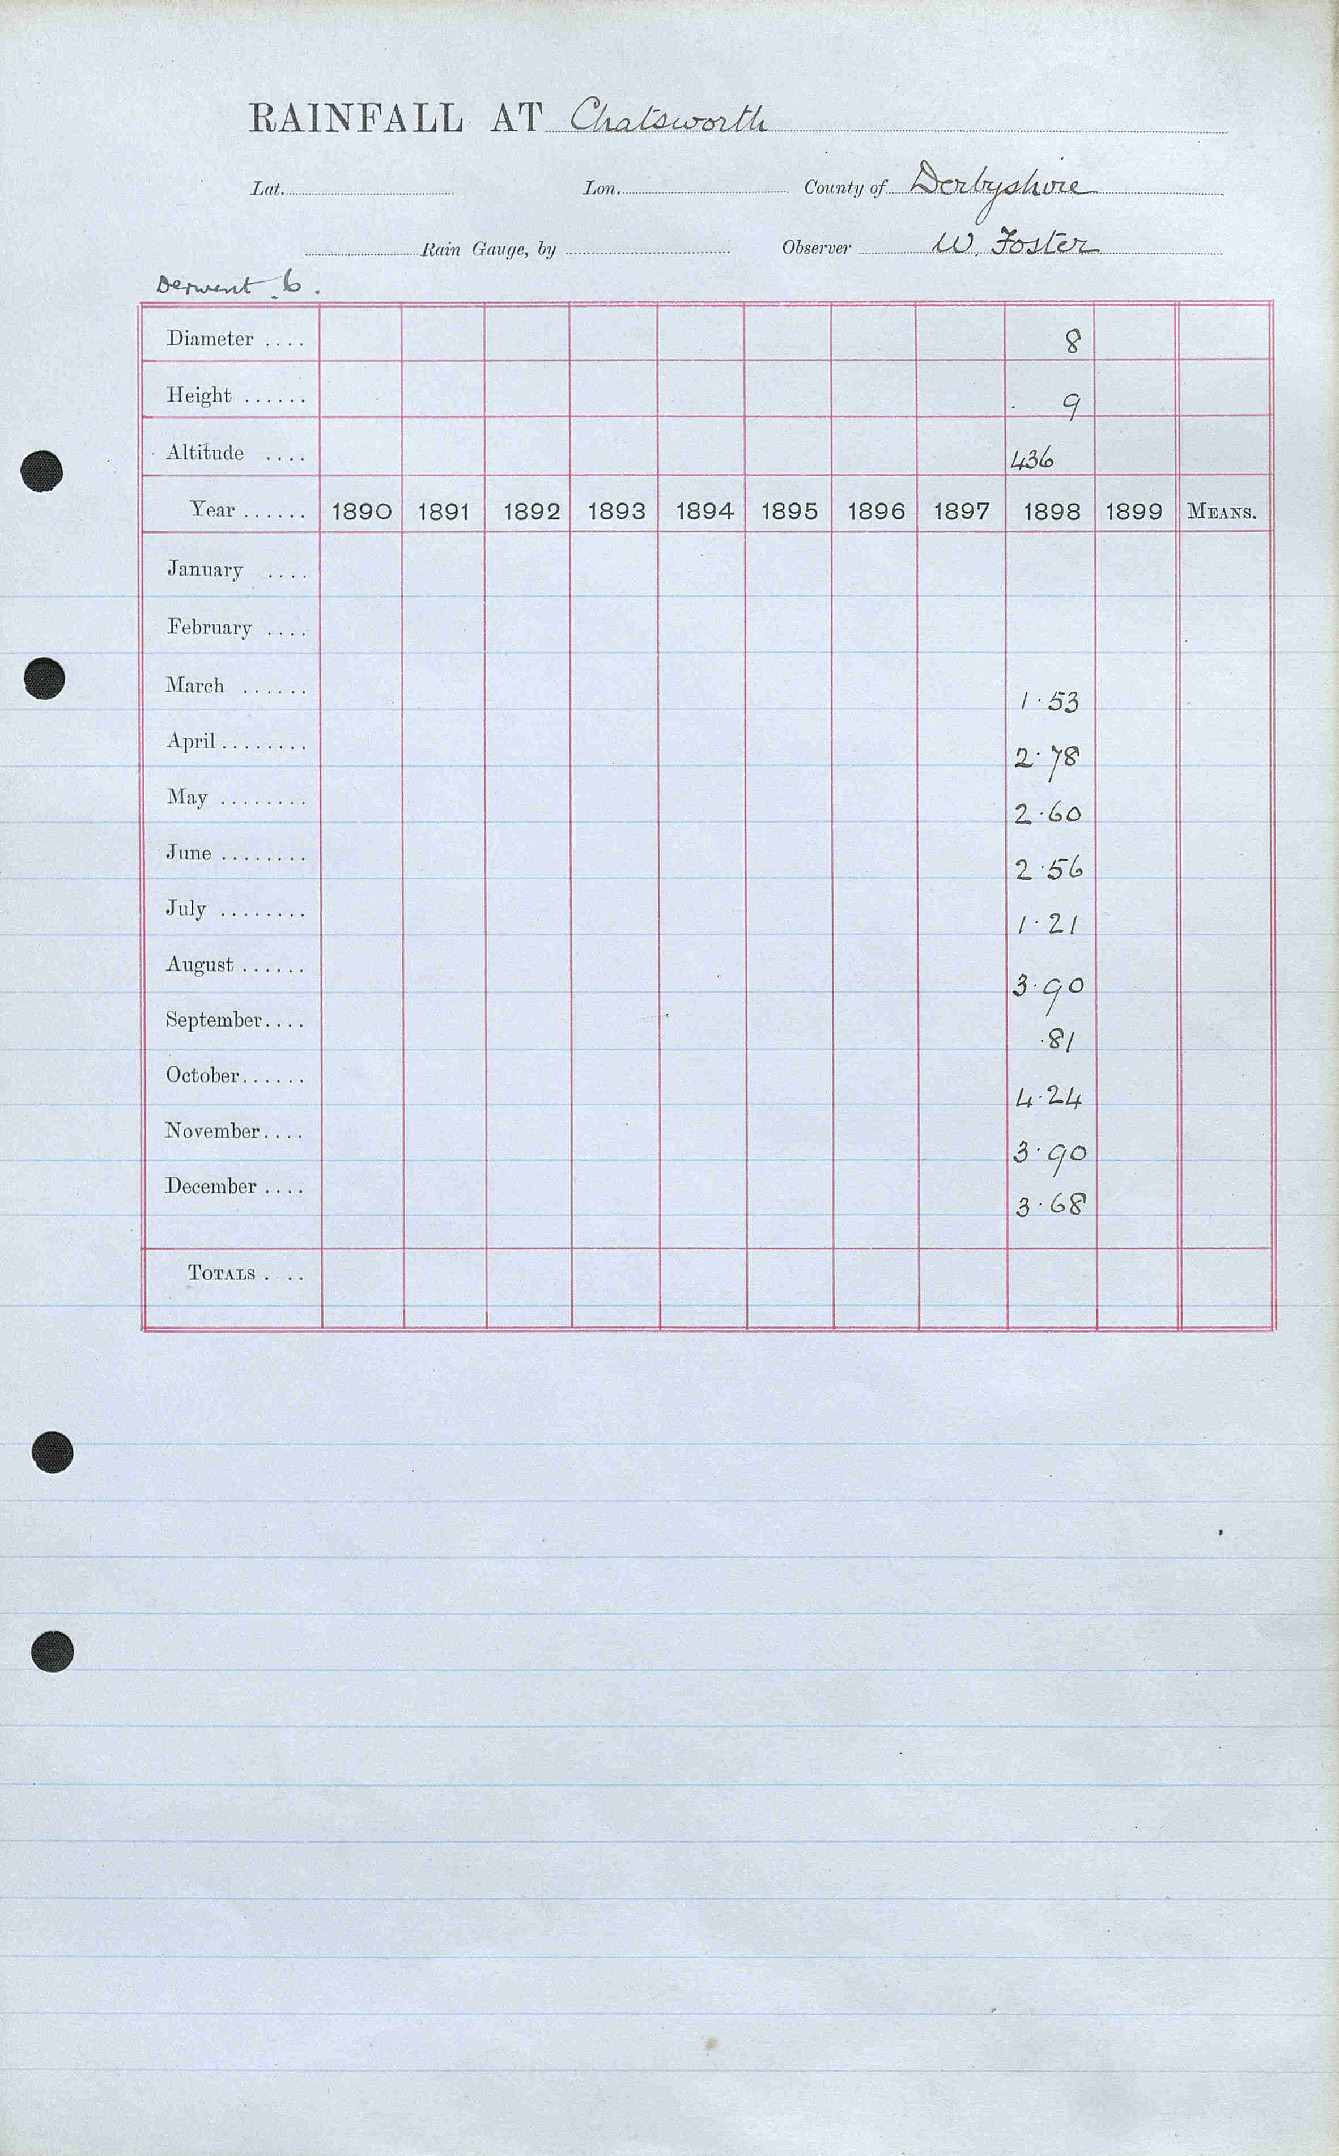 RAINFALL AT Chatsworth
Lat. Lon. County of Derbyshire
Rain Gauge, by Observer W. Foster
Derwent 6.
Diameter .... 8
Height ...... 9
Altitude .... 436
Year ...... 1890 1891 1892 1893 1894 1895 1896 1897 1898 1899 MEANS.
January ....
February ....
March ...... 1·53
April ........ 2·78
May ........ 2·60
June ........ 2·56
July ........ 1·21
August ...... 3·90
September.... ·81
October...... 4·24
November.... 3·90
December .... 3·68
TOTALS . ..